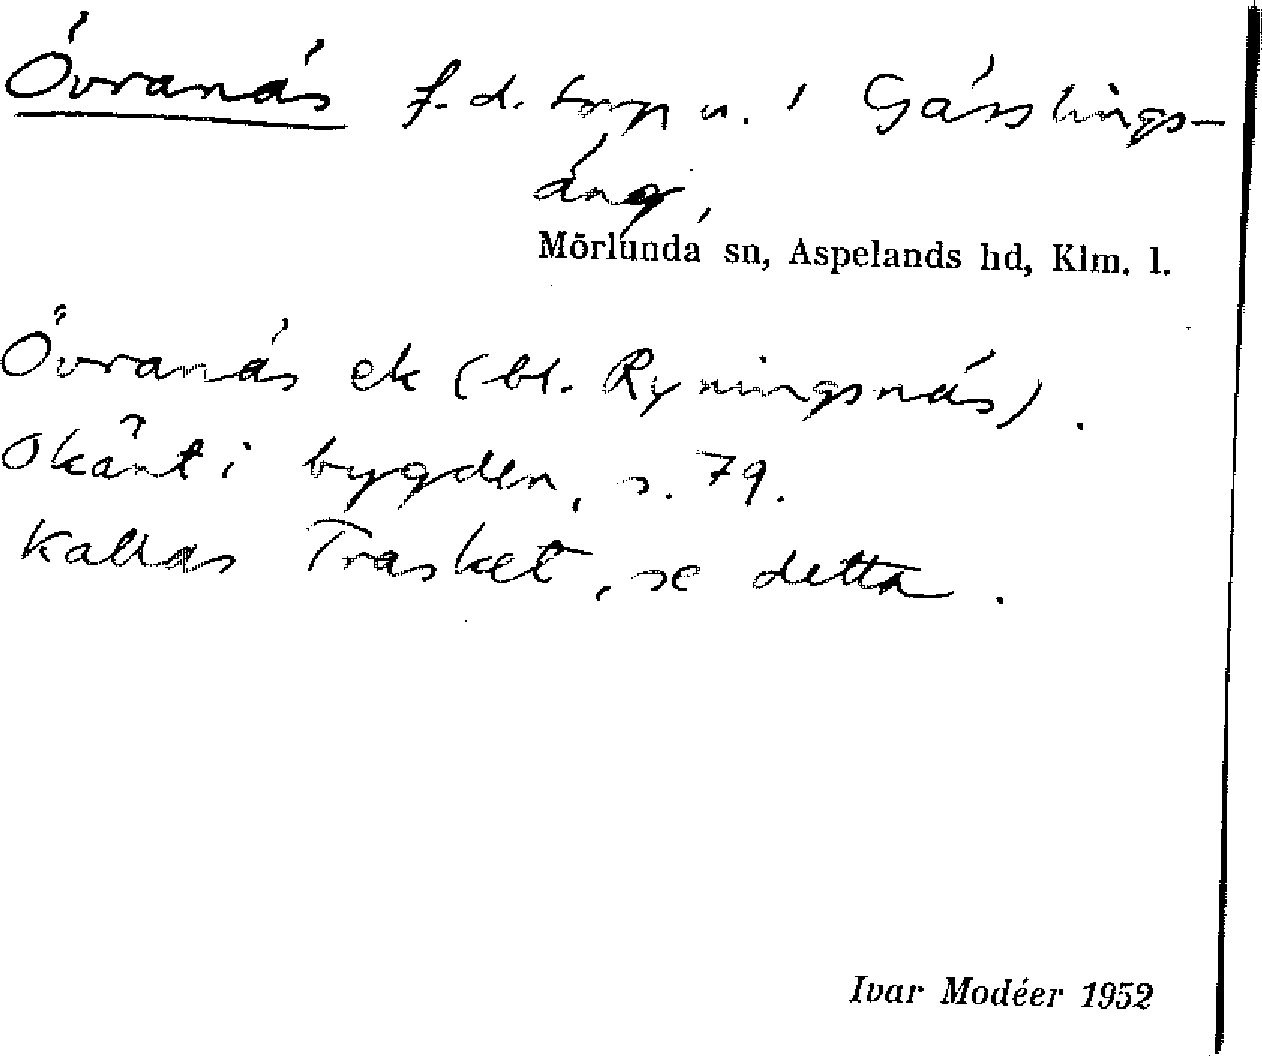 Övranäs f.d. torp u. Gässlings-
äng,
Mörlunda sn, Aspelands hd, Klm. l.
Övranäs ek (bl. Ryningsnäs).
Okänt i bygden, s. 79.
Kallas Trasket, se detta.
Ivar Modéer 1952